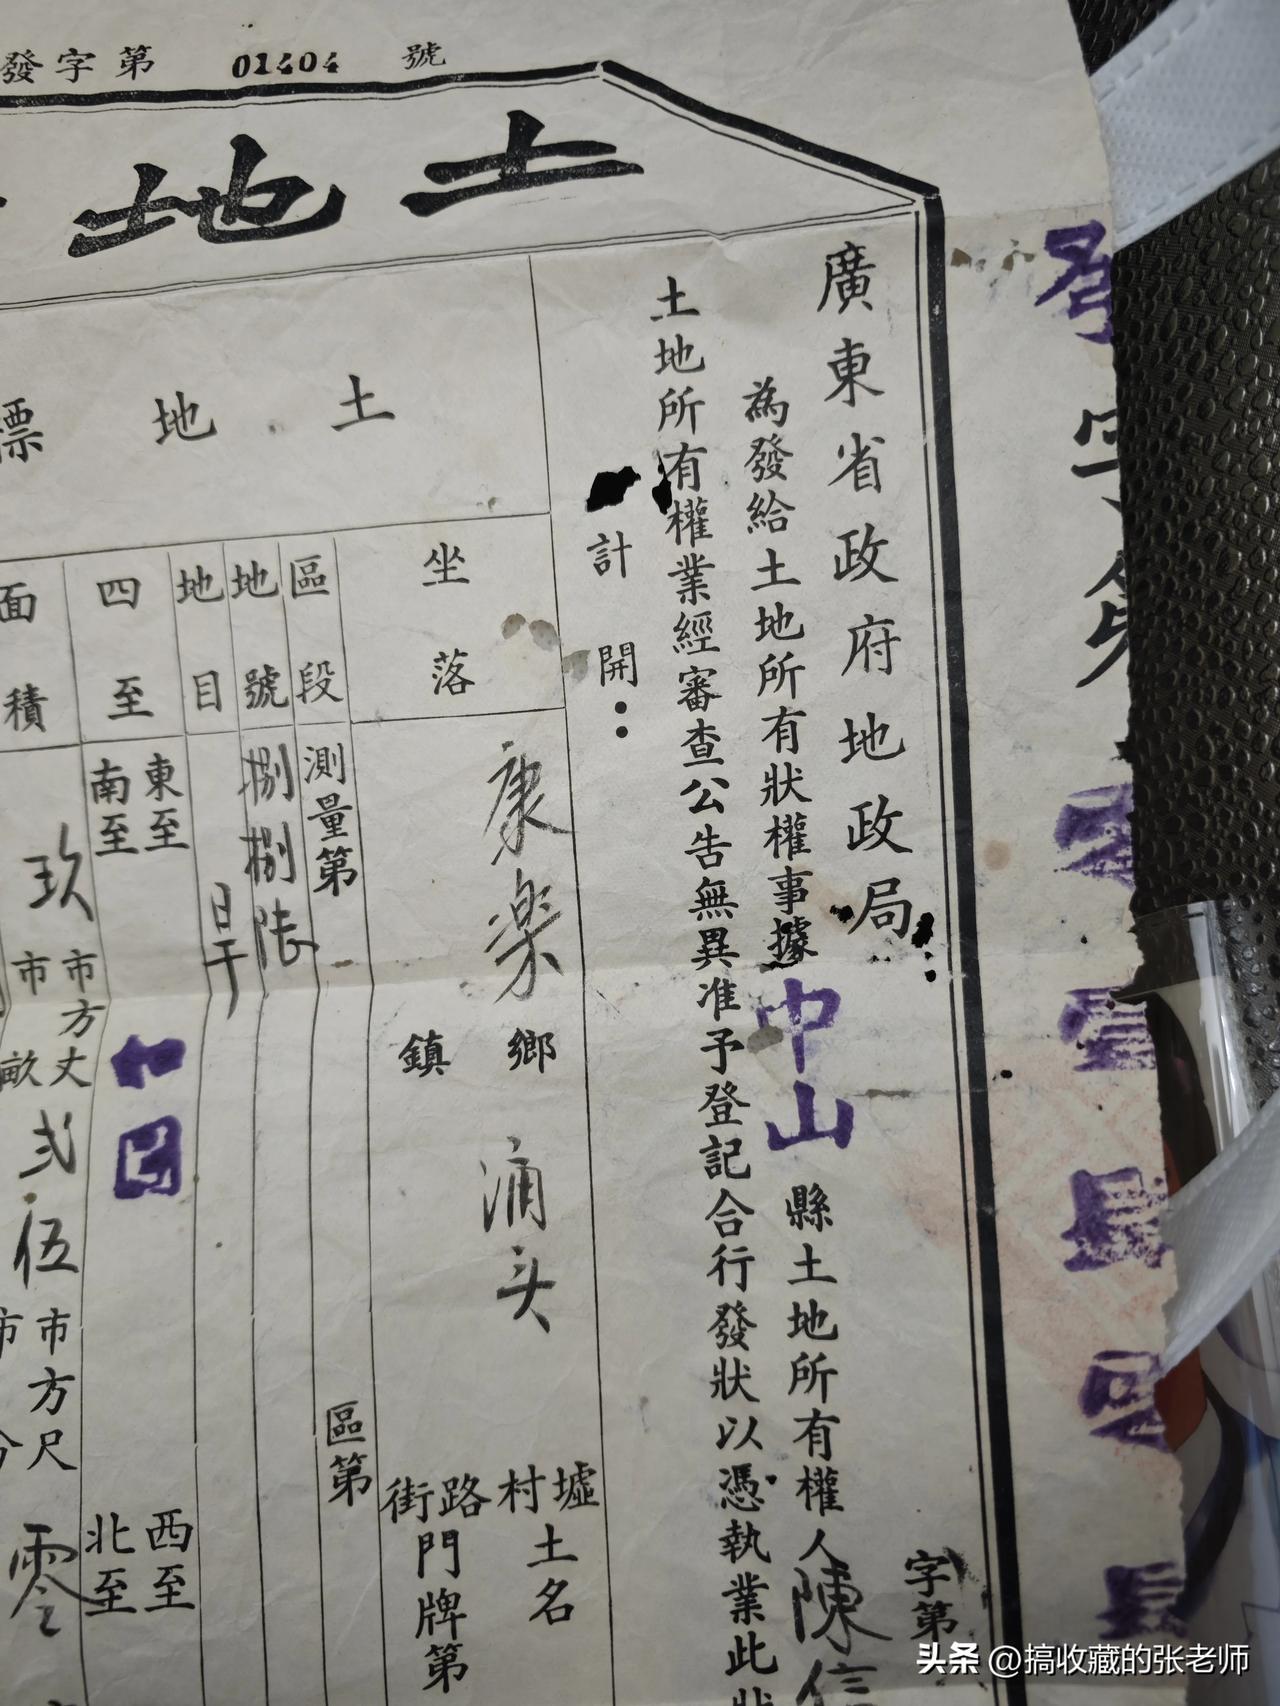 發字第 01404 號
土地
廣東省政府地政局
為發給土地所有狀權事據中山縣土地所有權人陳信
字第
土地所有權業經審查公告無異准予登記合行發狀以憑執業此狀
計開：
土地標
坐落
康樂
鄉
鎮
涌头
墟
村
土名
路
街
門牌第
區段
測量第
區第
地號
捌捌陸
地目
旱
四至
東至
南至
西至
北至
如图
面積
玖
市方丈
市畝
弍
伍
市方尺
市分
零
字第
零壹
头条 @搞收藏的张老师